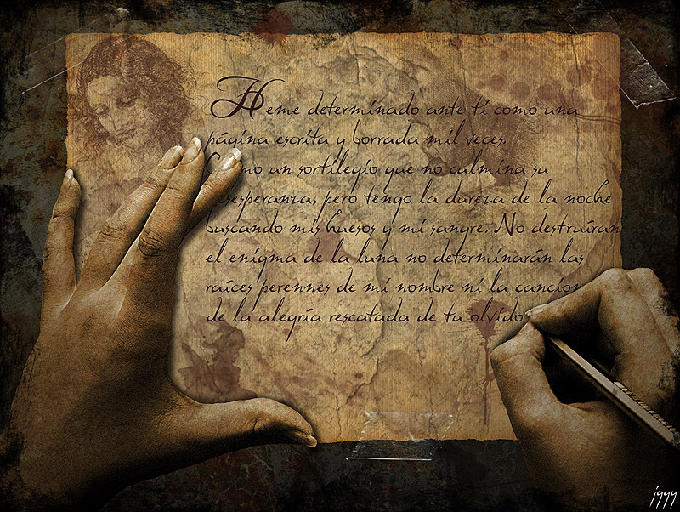 Heme determinado ante ti como una
página escrita y borrada mil veces.
Como un sortilegio que no culmina su
desesperanza, pero tengo la dureza de la noche
buscando mis huesos y mi sangre. No destruiran
el enigma de la luna no determinarán las
raíces perennes de mi nombre ni la cancion
de la alegria rescatada de tu olvido